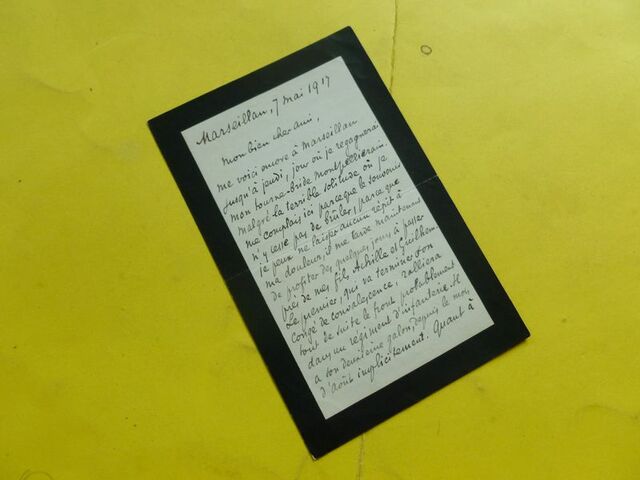 Marseillan, 7 mai 1917
Mon bien cher ami,
me voici encore à Marseillan
jusqu'à jeudi, jour où je regagnerai
mon tourne-bride montpelliérain
malgré la terrible solitude où je
me complais ici parceque le souvenir
n'y cesse pas de brûler, parce que
je peux ne laisser aucun répit à
ma douleur, il me tarde maintenant
de profiter des quelques jours à passer
près de mes fils, Achille et Guilhem.
Le premier, qui va terminer son
congé de convalescence, ralliera
tout de suite le front probablement
dans un régiment d'infanterie. Il
a son deuxième galon, depuis le mois
d'août implicitement. Quant à